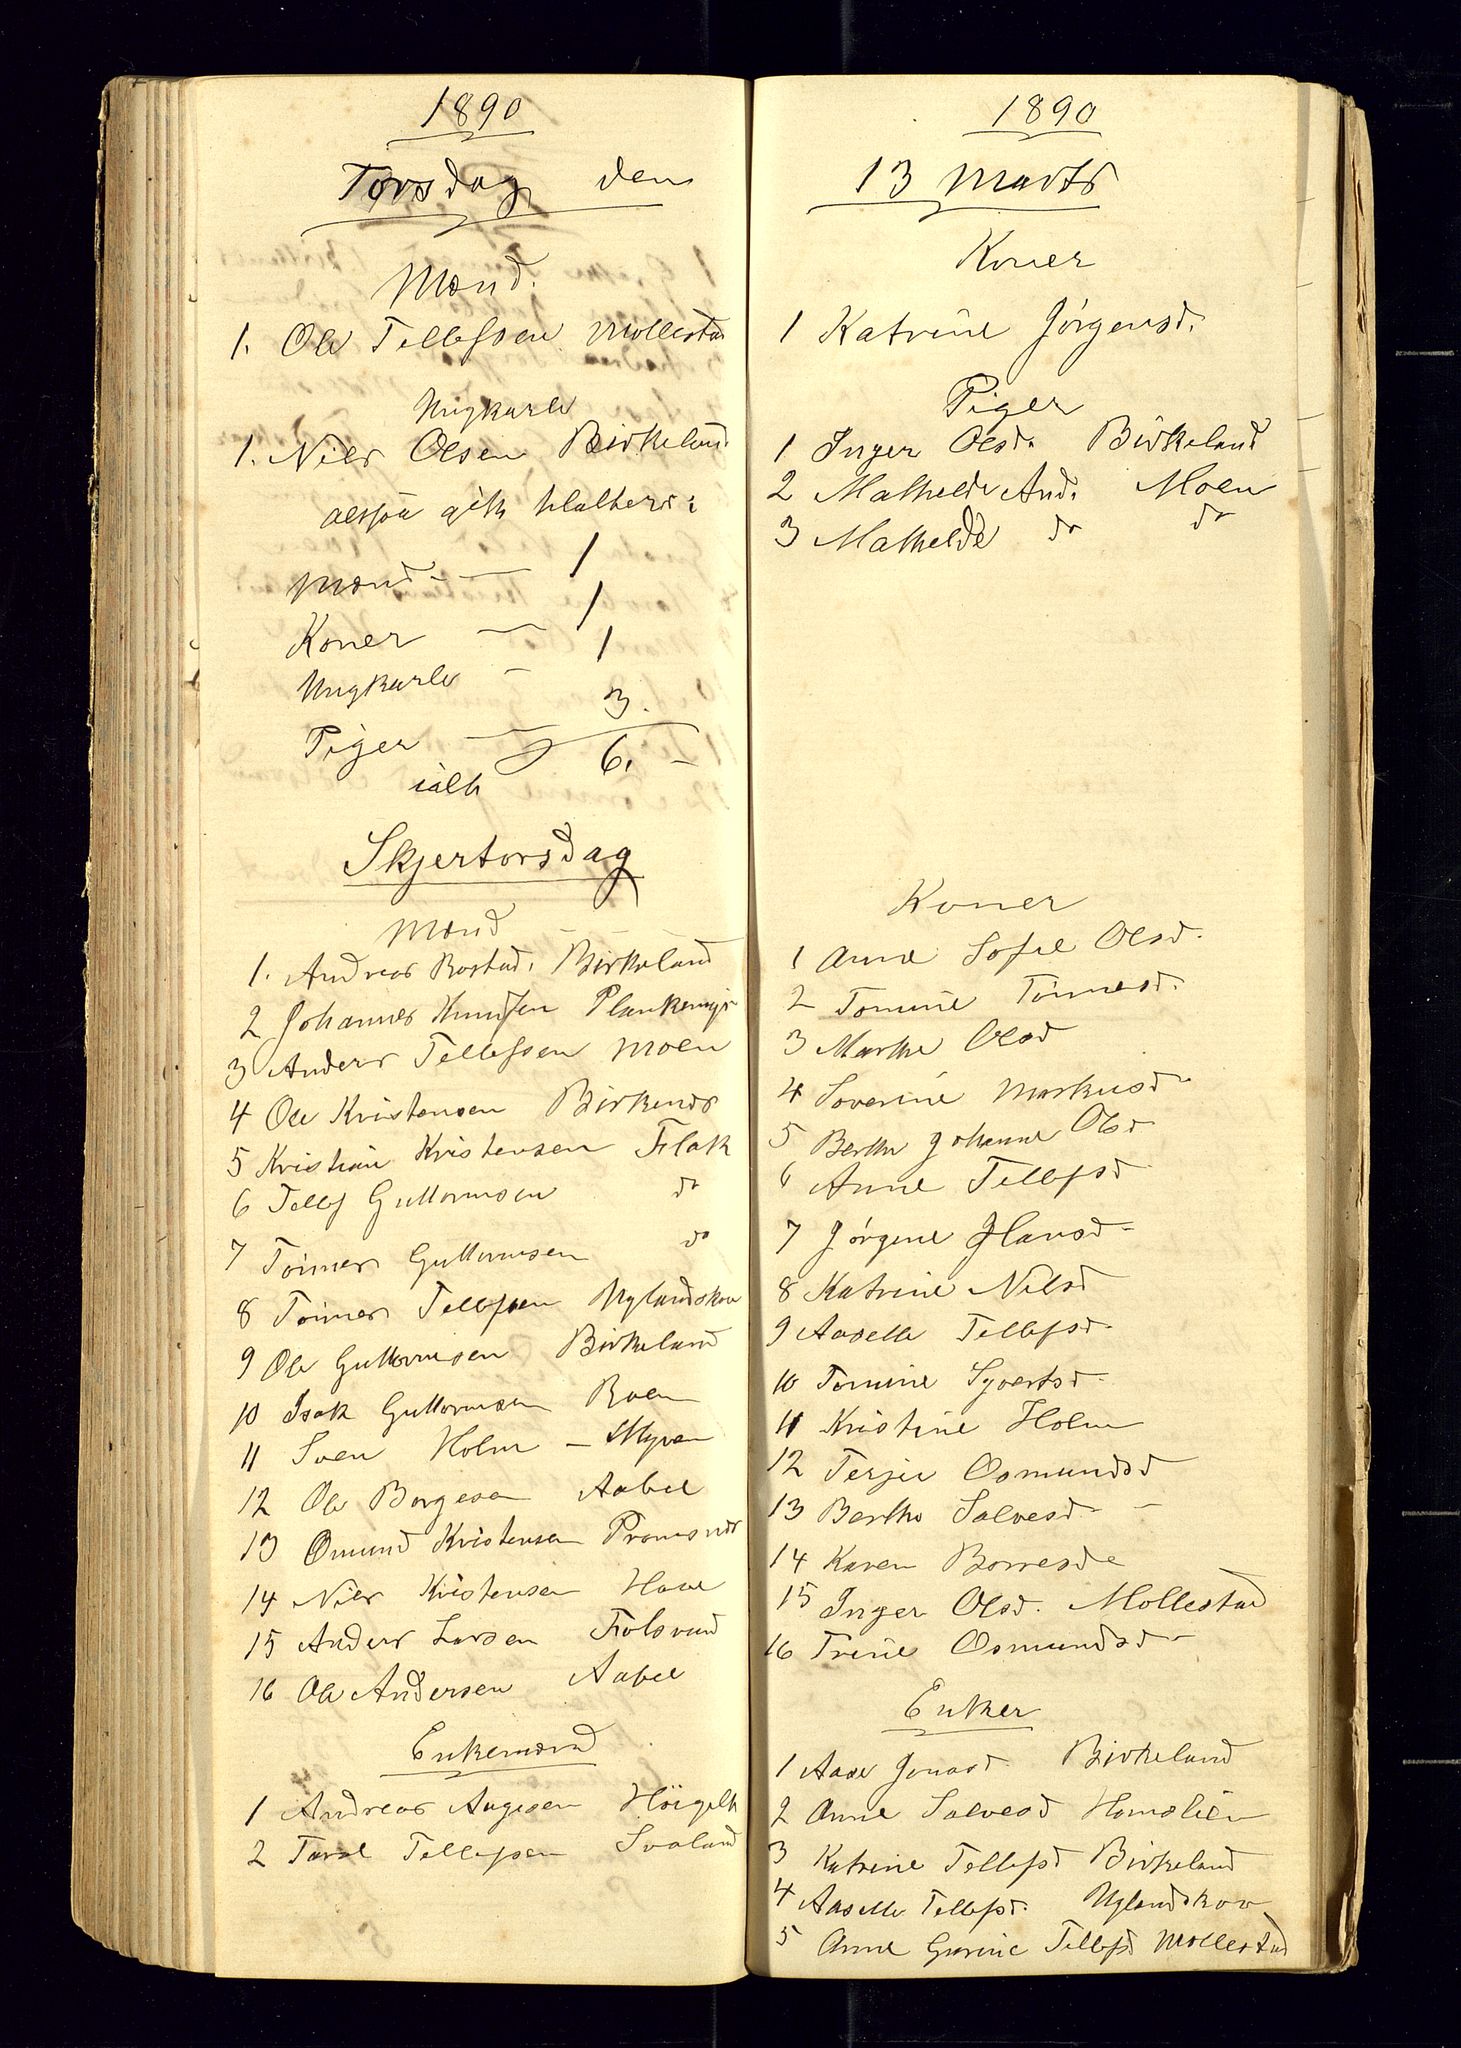 1890
Torsdag den
Mænd.
1. Ole Tellefsen Mollestad
Ungkarle
1. Niels Olsen Birkeland
altsaa gik til alters:
Mænd — 1
Koner — 1
Ungkarle — 1
Piger — 3.
ialt 6. —
Skjertorsdag
Mænd
1. Andreas Rostad. Birkeland
2 Johannes Knudsen Plankemyr
3 Anders Tellefsen Moen
4 Ole Kristensen Birkends
5 Kristian Kristensen Flak
6 Tellef Guttormsen do
7 Tönnes Guttormsen do
8 Tönnes Tellefsen Uglandskov
9 Ole Guttormsen Birkeland
10 Isak Guttormsen Roen
11 Sven Holm — Myren
12 Ole Borgesen Aabel
13 Omund Kristensen
14 Niels Kristensen Have
15 Anders Larsen Fidsvand
16 Ole Andersen Aabel
Enkemænd
1 Andreas Aagesen
2 Tarel Tellefsen Svaland
1890
13 Marts
Koner
1 Katrine Jörgensd.
Piger
1 Inger Olsd. Birkeland
2 Mathilde And. Moen
3 Mathilde do do
Koner
1 Anne Sofie Olsd.
2 Tomine Tönnesd.
3 Marthe Olsd
4 Soverine Markusd
5 Berthe Johanne Olsd
6 Anne Tellefsd
7 Jørgine Hansd
8 Katrine Nilsd
9 Aaselle Tellefsd
10 Tomine Syvertsd
11 Kristine Holm
12 Terjer Osmundsd
13 Berthe Salvesd —
14 Karen Borresd
15 Inger Olsd. Mollestad
16 Trine Osmundsd
Enker
1 Aase Jonasd Birkeland
2 Anne Salvesd Hamslien
3 Katrine Tellefsd Birkeland
4 Aaselle Tellefsd. Uglandskov
5 Anne Gurine Tellefsd Mollestad